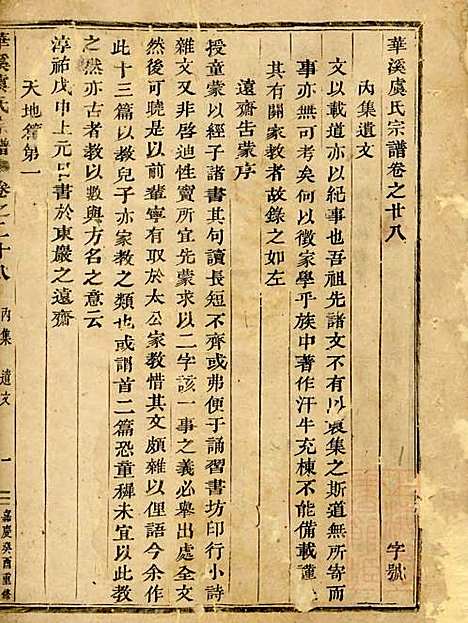 華溪虞氏宗譜卷之廿八
字號
內集遺文
文以載道亦以紀事也吾祖先諸文不有以裒集之斯道無所寄而
事亦無可考矣何以徵家學乎族中著作汗牛充棟不能備載謹
其有關家教者故錄之如左
遠齋告蒙序
授童蒙以經子諸書其句讀長短不齊或弗便于誦習書坊印行小詩
雜文又非啓迪性竇所宜先蒙求以二字該一事之義必擧出處全文
然後可曉是以前輩寧有取於太公家教惜其文頗雜以俚語今余作
此十三篇以教兒子亦家教之類也或謂首二篇恐童穉未宜以此教
之然亦古者教以數與方名之意云
淳祐戊申上元日書於東嚴之遠齋
天地篇第一
華溪虞氏宗譜
卷之二十八
內集
遺文
一
嘉慶癸酉重修